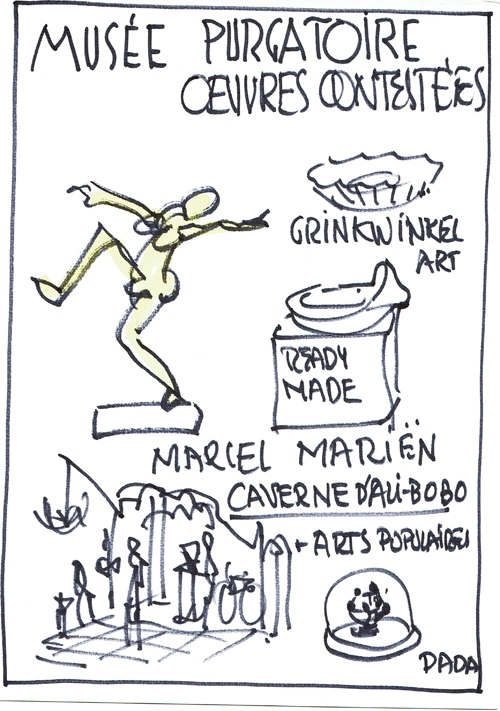 MUSÉE PURGATOIRE
ŒUVRES CONTESTÉES
GRINKWINKEL
ART
READY
MADE
MARCEL MARIËN
CAVERNE D'ALI-BOBO
+ ARTS POPULAIRES
DADA